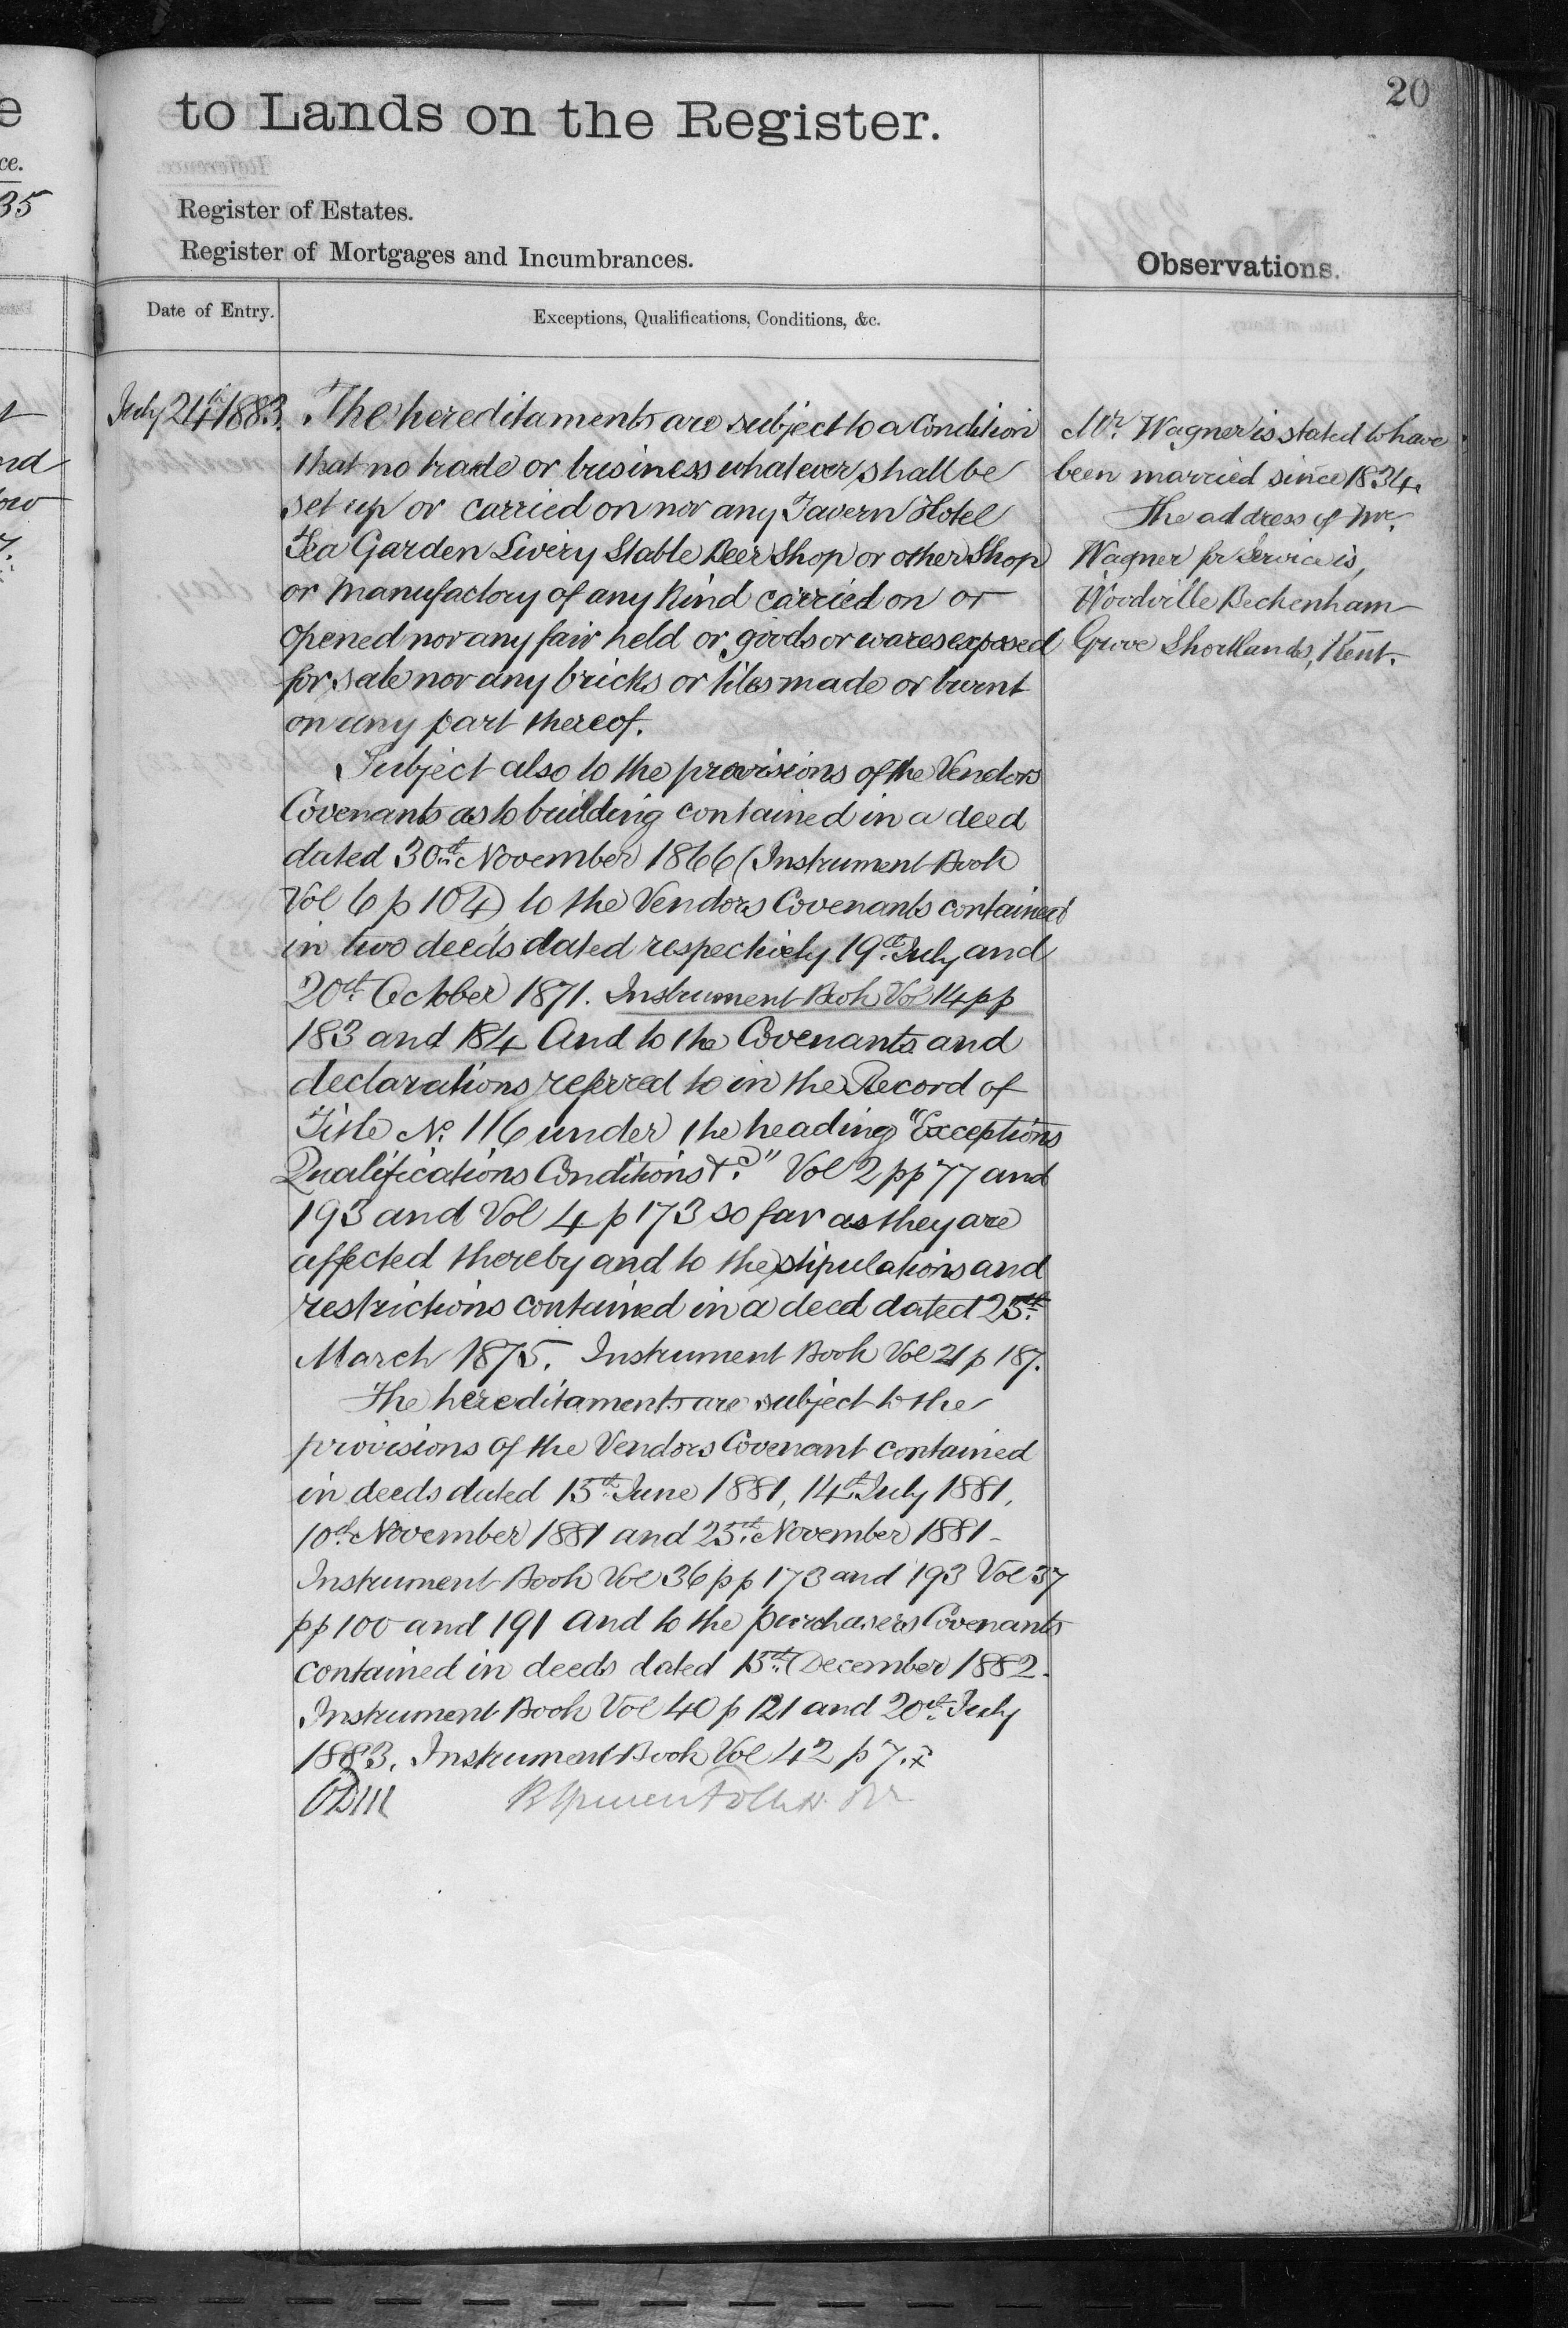 20
to Lands on the Register.
Register of Estates.
Register of Mortgages and Incumbrances.
Observations.
Date of Entry.
Exceptions, Qualifications, Conditions, &c.
July 24th 1883.
The hereditaments are subject to a Condition
that no trade or business whatever shall be
set up or carried on nor any Tavern Hotel
Tea Garden Livery Stable Beer Shop or other Shop
or Manufactory of any kind carried on or
opened nor any fair held or goods or wares exposed
for sale nor any bricks or tiles made or burnt
on any part thereof.
Subject also to the provisions of the Vendors
Covenants as to building contained in a deed
dated 30th November 1866 (Instrument Book
Vol 6 p 104) to the Vendors Covenants contained
in two deeds dated respectively 19th July and
20th October 1871. Instrument Book Vol 14 pp
183 and 184 And to the Covenants and
declarations referred to in the Record of
Title No. 116 under the heading "Exceptions
Qualifications Conditions &c." Vol 2 pp 77 and
193 and Vol 4 p 173 so far as they are
affected thereby and to the stipulations and
restrictions contained in a deed dated 25th
March 1875. Instrument Book Vol 21 p 187.
The hereditaments are subject to the
provisions of the Vendors Covenant contained
in deeds dated 15th June 1881, 14th July 1881,
10th November 1881 and 25th November 1881 -
Instrument Book Vol 36 pp 173 and 193 Vol 37
pp 100 and 191 and to the purchasers Covenants
contained in deeds dated 15th December 1882.
Instrument Book Vol 40 p 121 and 20th July
1883. Instrument Book Vol 42 p 7. x
Mr. Wagner is stated to have
been married since 1834.
The address of Mr.
Wagner for Service is,
Woodville Beckenham
Grove Shortlands, Kent.
e
ce.
35